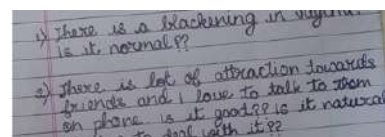 1) There is a blackening in vagina.
is it normal??
2) There is lot of attraction towards
friends and i love to talk to them
on phone is it good?? is it natural
to deal with it??